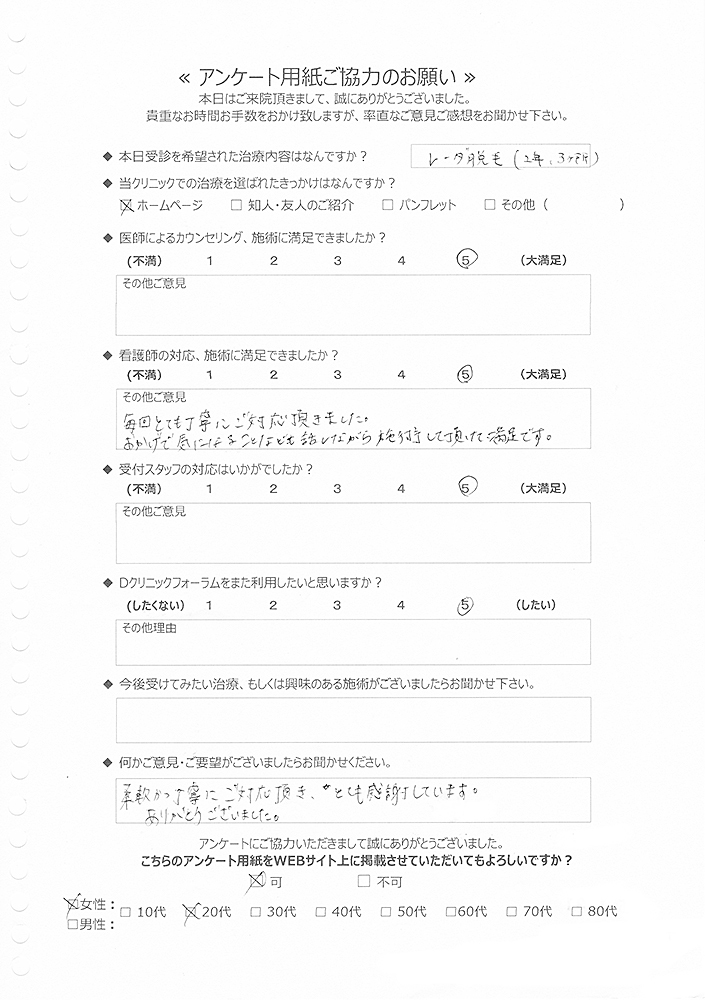 ≪ アンケート用紙ご協力のお願い ≫
本日はご来院頂きまして、誠にありがとうございました。
貴重なお時間お手数をおかけ致しますが、率直なご意見ご感想をお聞かせ下さい。
◆ 本日受診を希望された治療内容はなんですか？ レーザ脱毛 (2年、3ヶ所)
◆ 当クリニックでの治療を選ばれたきっかけはなんですか？
☒ ホームページ □ 知人・友人のご紹介 □ パンフレット □ その他 ( )
◆ 医師によるカウンセリング、施術に満足できましたか？
(不満) 1 2 3 4 5 (大満足)
その他ご意見
◆ 看護師の対応、施術に満足できましたか？
(不満) 1 2 3 4 5 (大満足)
その他ご意見
毎回とても丁寧にご対応頂きました。
おかげで気になることなども話しながら施術して頂けた満足です。
◆ 受付スタッフの対応はいかがでしたか？
(不満) 1 2 3 4 5 (大満足)
その他ご意見
◆ Dクリニックフォーラムをまた利用したいと思いますか？
(したくない) 1 2 3 4 5 (したい)
その他理由
◆ 今後受けてみたい治療、もしくは興味のある施術がございましたらお聞かせ下さい。
◆ 何かご意見・ご要望がございましたらお聞かせください。
柔軟かつ丁寧にご対応頂き、とても感謝しています。
ありがとうございました。
アンケートにご協力いただきまして誠にありがとうございました。
こちらのアンケート用紙をWEBサイト上に掲載させていただいてもよろしいですか？
☒ 可 □ 不可
☒女性： □ 10代 ☒20代 □ 30代 □ 40代 □ 50代 □60代 □ 70代 □ 80代
□男性：